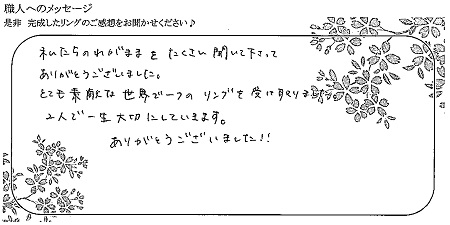 職人へのメッセージ
是非 完成したリングのご感想をお聞かせください♪
私たちのわがままをたくさん聞いて下さって
ありがとうございました。
とても素敵な世界で一つのリングを受け取りま
2人で一生大切にしていきます。
ありがとうございました!!